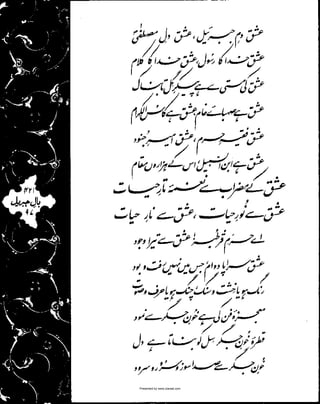 عشق دمِ جبرئیل، عشق دلِ مصطفیٰؐ
عشق خدا کا رسول، عشق خدا کا کلام
عشق کی مستی سے ہے پیکرِ گل تابناک
عشق ہے صہبائے خام، عشق ہے کاس الکرام
عشق فقیہِ حرم، عشق امیرِ جنود
عشق ہے ابن السبیل، اس کے ہزاروں مقام
عشق کے مضراب سے نغمۂ تارِ حیات
عشق سے نورِ حیات، عشق سے نارِ حیات
اے حرمِ قرطبہ! عشق سے تیرا وجود
عشق سراپا دوام، جس میں نہیں رفت و بود
رنگ ہو یا خشت و سنگ، چنگ ہو یا حرف و صوت
معجزۂ فن کی ہے خونِ جگر سے نمود
قطرۂ خونِ جگر، سل کو بناتا ہے دل
خونِ جگر سے صدا سوز و سرور و سرود
۴۲۱
بالِ جبریل
۹۷
Presented by www.iqbalal.com